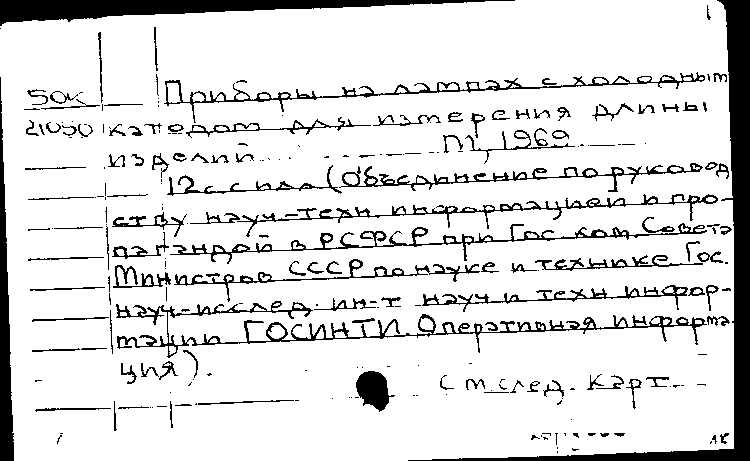 1
50к Приборы на лампах с холодным
21050 катодом для измерения длины
изделий. М., 1969
12с. с илл (Объединение по руковод
ству науч.-техн. информацией и про-
пагандой в РСФСР при Гос. ком. Совета
Министров СССР по науке и технике Гос.
науч-исслед. ин-т науч и техн инфор-
мации ГОСИНТИ. Оперативная информа
ция).
см след. карт.